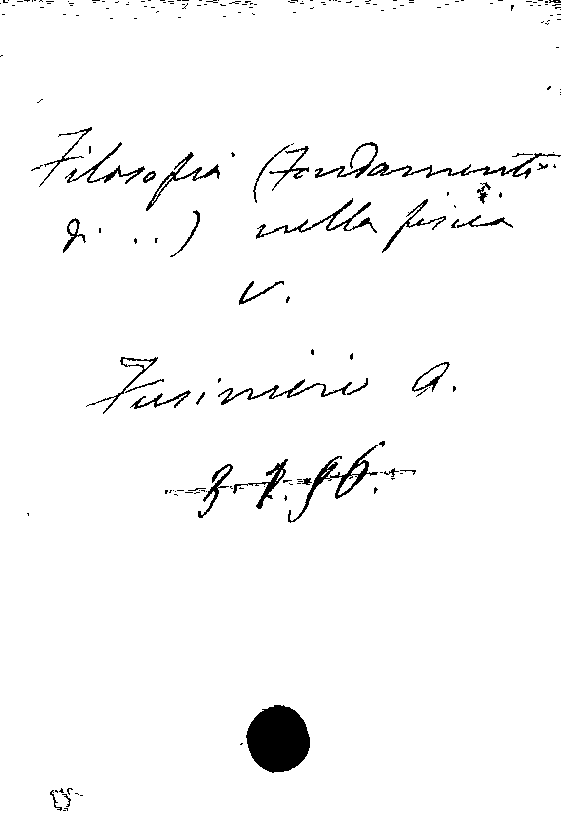 Filosofia (Fondamenti
di ...) nella fisica
v.
Fusinieri A.
3.7.96.